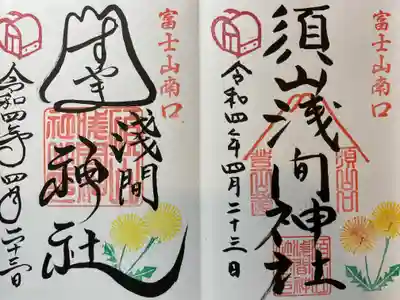 富士山南口
須山浅間神社
令和四年四月二十三日
須山口
登山道
富士山南口
すやま
浅間
神社
令和四年四月二十三日